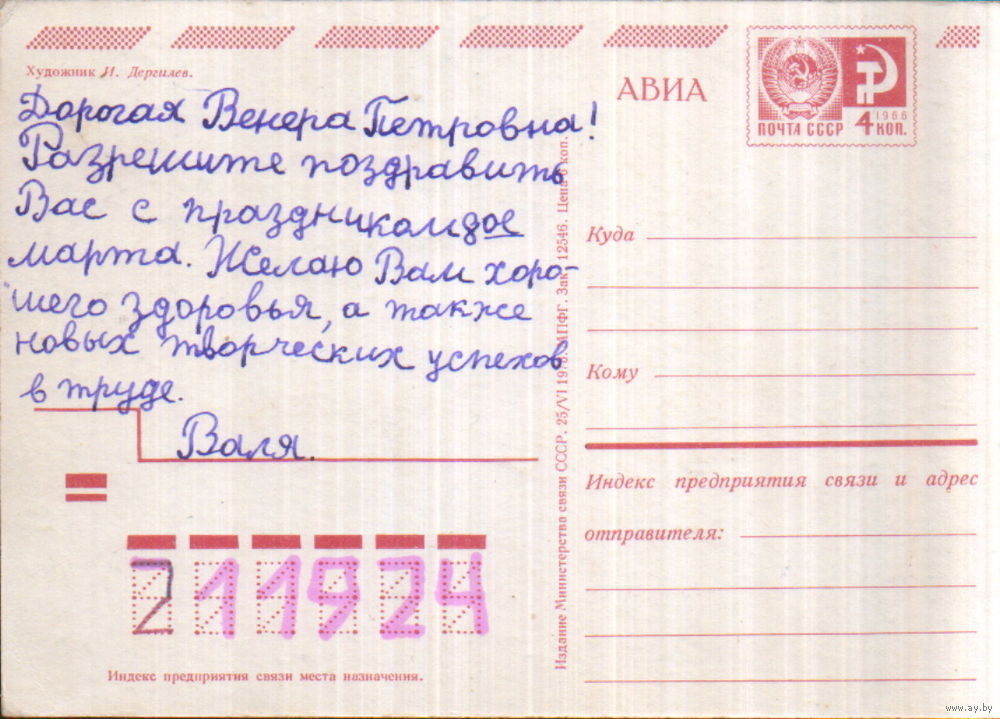 Художник И. Дергилев.
Дорогая Венера Петровна!
Разрешите поздравить
Вас с праздником 8ое
марта. Желаю Вам хоро-
шего здоровья, а также
новых творческих успехов
в труде.
Валя.
211924
Индекс предприятия связи места назначения.
Издание Министерства связи СССР. 25/VI 1976. МПФГ. Зак. 12546. Цена 6 коп.
АВИА
ПОЧТА СССР
1966
4 КОП.
Куда
Кому
Индекс предприятия связи и адрес
отправителя:
www.ay.by